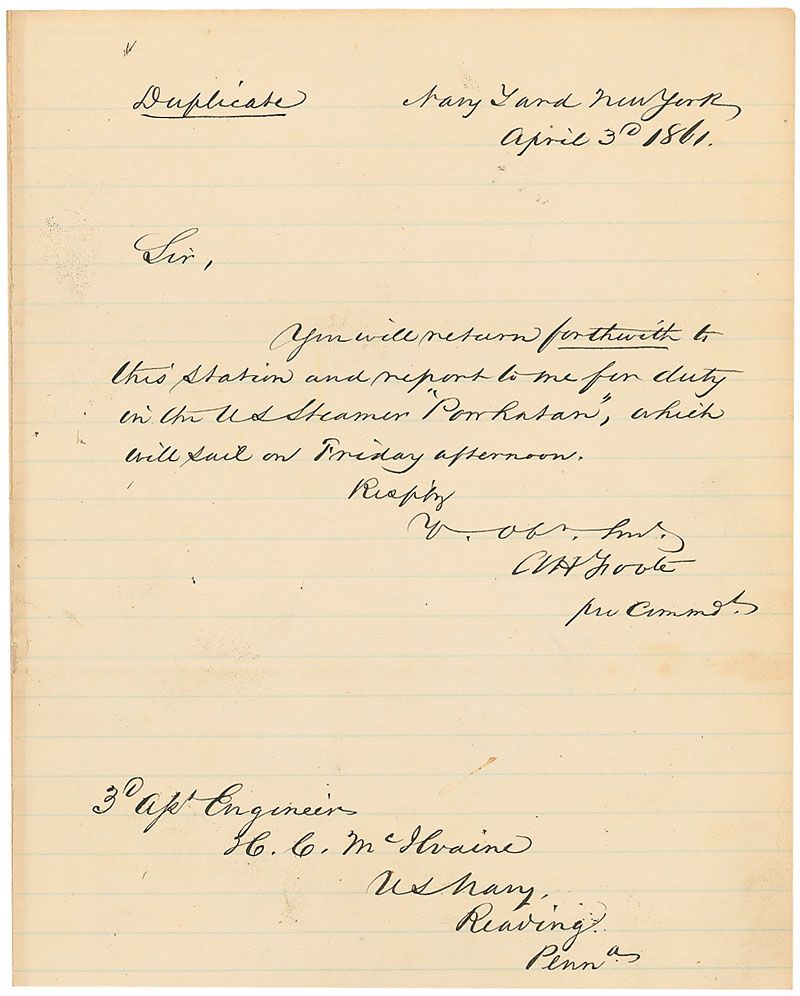 Duplicate
Navy Yard New York
April 3D 1861.
Sir,
You will return forthwith to
this station and report to me for duty
on the US Steamer "Powhatan", which
will sail on Friday afternoon.
Respy
Yr. Obt. Sevt.
A H Foote
pro Commdt.
3D Asst Engineer
H. C. McIlvaine
US Navy,
Reading.
Penna